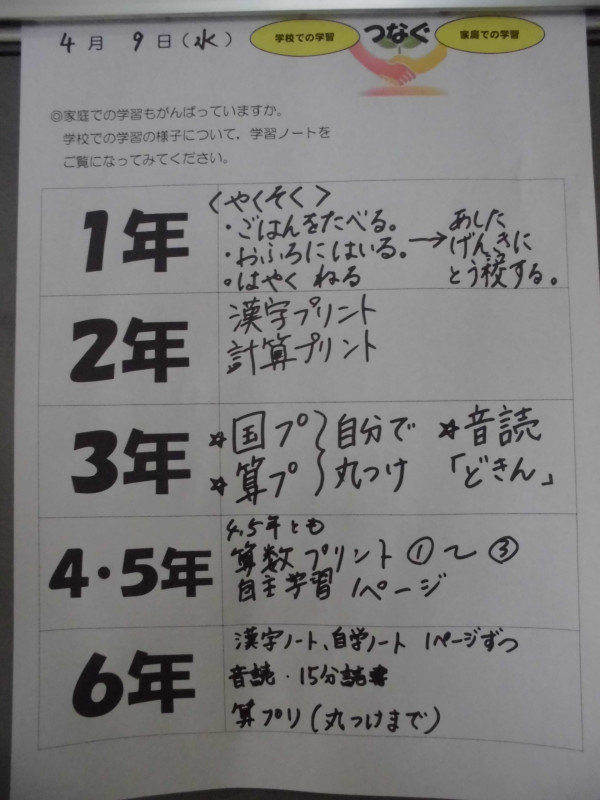 4月 9日(水)
学校での学習 つなぐ 家庭での学習
◎家庭での学習もがんばっていますか。
学校での学習の様子について，学習ノートを
ご覧になってみてください。
1年
〈やくそく〉
・ごはんをたべる。
・おふろにはいる。
・はやく ねる
→あした
げんきに
とう校する。
2年
漢字プリント
計算プリント
3年
☆国プ
☆算プ
}自分で
丸つけ
☆音読
「どきん」
4・5年
4.5年とも
算数プリント①～③
自主学習 1ページ
6年
漢字ノート、自学ノート 1ページずつ
音読・15分読書
算プリ(丸つけまで)